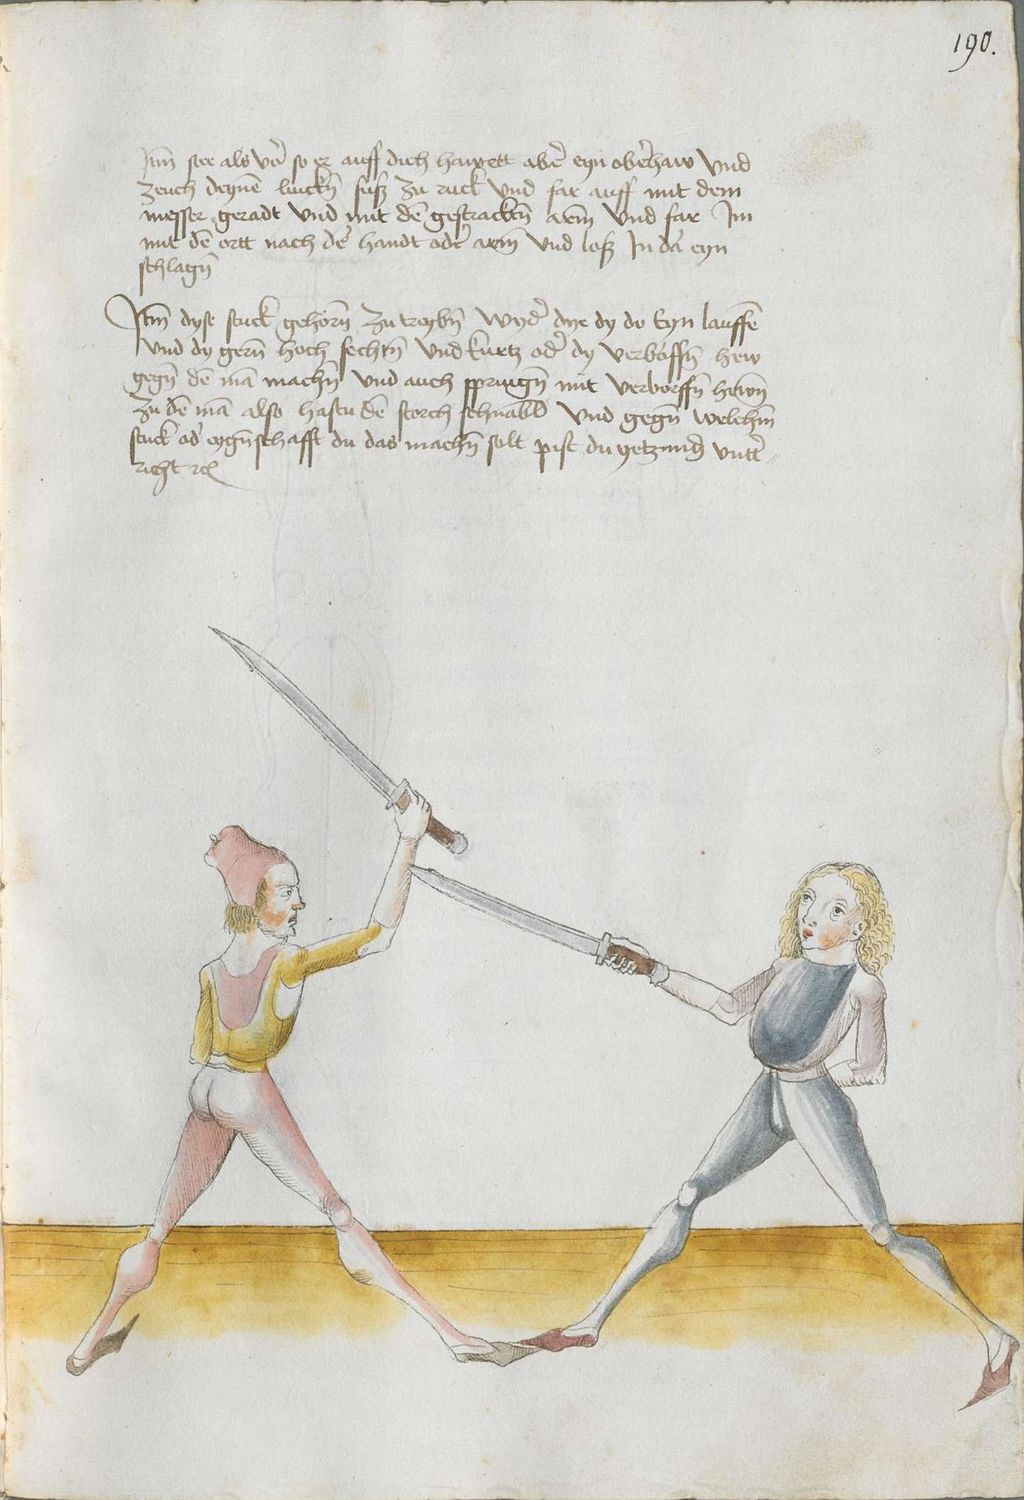 190.
Itm̄ stee als vor̄ so er auff dich hawett aber̄ eyn ober̄haw vnd
zeuch deynē linckn̄ fuß zu ruck vnd far auff mit dem
messer geradt vnd mit dē gestracktn̄ arm vnd far Im
mit dē ortt nach de᷑ handt oder̄ arm vnd loß In da᷑ eyn
schlagn̄
Itm̄ dyse stuck gehorn̄ zu treybn̄ wyder̄ dye dy do Eyn lauffē
vnd dy gern̄ hoch fechtn̄ vnd kurtz oder̄ dy verborffn̄ hew
gegn̄ dē mā machn̄ vnd auch springn̄ mit verborffn̄ hewn̄
zu dē mā also hastu dē storch schnabl vnd gegn̄ welchm̄
stuck od᷑ eygn̄schafft du das machn̄ solt pist du yetzund vntter̄
richt rc